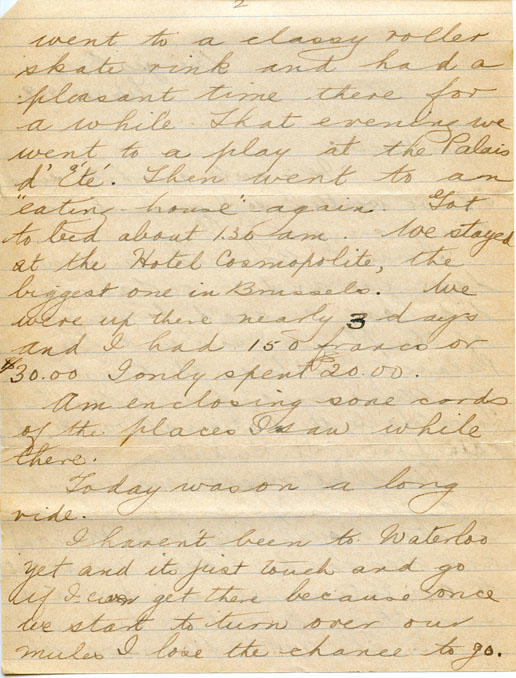 2
went to a classy roller
skate rink and had a
pleasant time there for
a while. That evening we
went to a play at the Palais
d'Eté. Then went to an
"eating house" again. Got
to bed about 1.30 am. We stayed
at the Hotel Cosmopolite, the
biggest one in Brussels. We
were up there nearly 3 days
and I had 150 francs or
$30.00 I only spent $20.00.
Am enclosing some cards
of the places I saw while
there.
Today was on a long
ride.
I haven't been to Waterloo
yet and its just touch and go
if I can get there because once
we start to turn over our
mules I lose the chance to go.